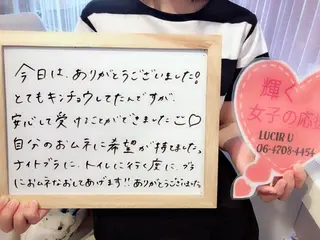 今日は、ありがとうございました!
とてもキンチョウしてたんですが、
安心して受けることができました♡
自分のおムネに希望が持てました。
ナイトブラに、トイレに行く度に、ブラ
におムネなおしてあげます!!ありがとうございました。
輝く
女子の応援
LUCIR U
06-4708-4454